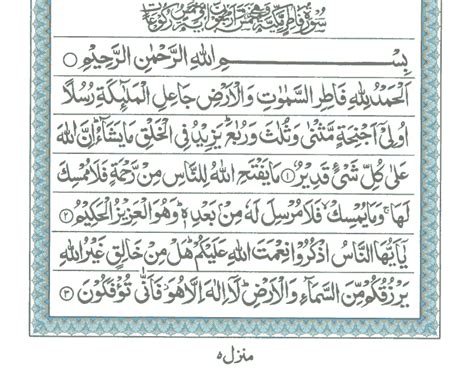 سُوْرَةُ فَاطِرٍ مَّكِّيَّةٌ وَّهِيَ خَمْسٌ وَّاَرْبَعُوْنَ اٰيَةً وَّخَمْسُ رُكُوْعَاتٍ
بِسْمِ اللّٰهِ الرَّحْمٰنِ الرَّحِيْمِ ○
اَلْحَمْدُ لِلّٰهِ فَاطِرِ السَّمٰوٰتِ وَالْاَرْضِ جَاعِلِ الْمَلٰٓئِكَةِ رُسُلًا
اُولِيْٓ اَجْنِحَةٍ مَّثْنٰى وَثُلٰثَ وَرُبٰعَ ؕ يَزِيْدُ فِي الْخَلْقِ مَا يَشَآءُ ؕ اِنَّ اللّٰهَ
عَلٰى كُلِّ شَيْءٍ قَدِيْرٌ ۝۱ مَا يَفْتَحِ اللّٰهُ لِلنَّاسِ مِنْ رَّحْمَةٍ فَلَا مُمْسِكَ
لَهَا ۚ وَمَا يُمْسِكْ ۙ فَلَا مُرْسِلَ لَهٗ مِنْۢ بَعْدِهٖ ؕ وَهُوَ الْعَزِيْزُ الْحَكِيْمُ ۝۲
يٰٓاَيُّهَا النَّاسُ اذْكُرُوْا نِعْمَتَ اللّٰهِ عَلَيْكُمْ ؕ هَلْ مِنْ خَالِقٍ غَيْرُ اللّٰهِ
يَرْزُقُكُمْ مِّنَ السَّمَآءِ وَالْاَرْضِ ؕ لَآ اِلٰهَ اِلَّا هُوَ ۖ فَاَنّٰى تُؤْفَكُوْنَ ۝۳
منزل ۵